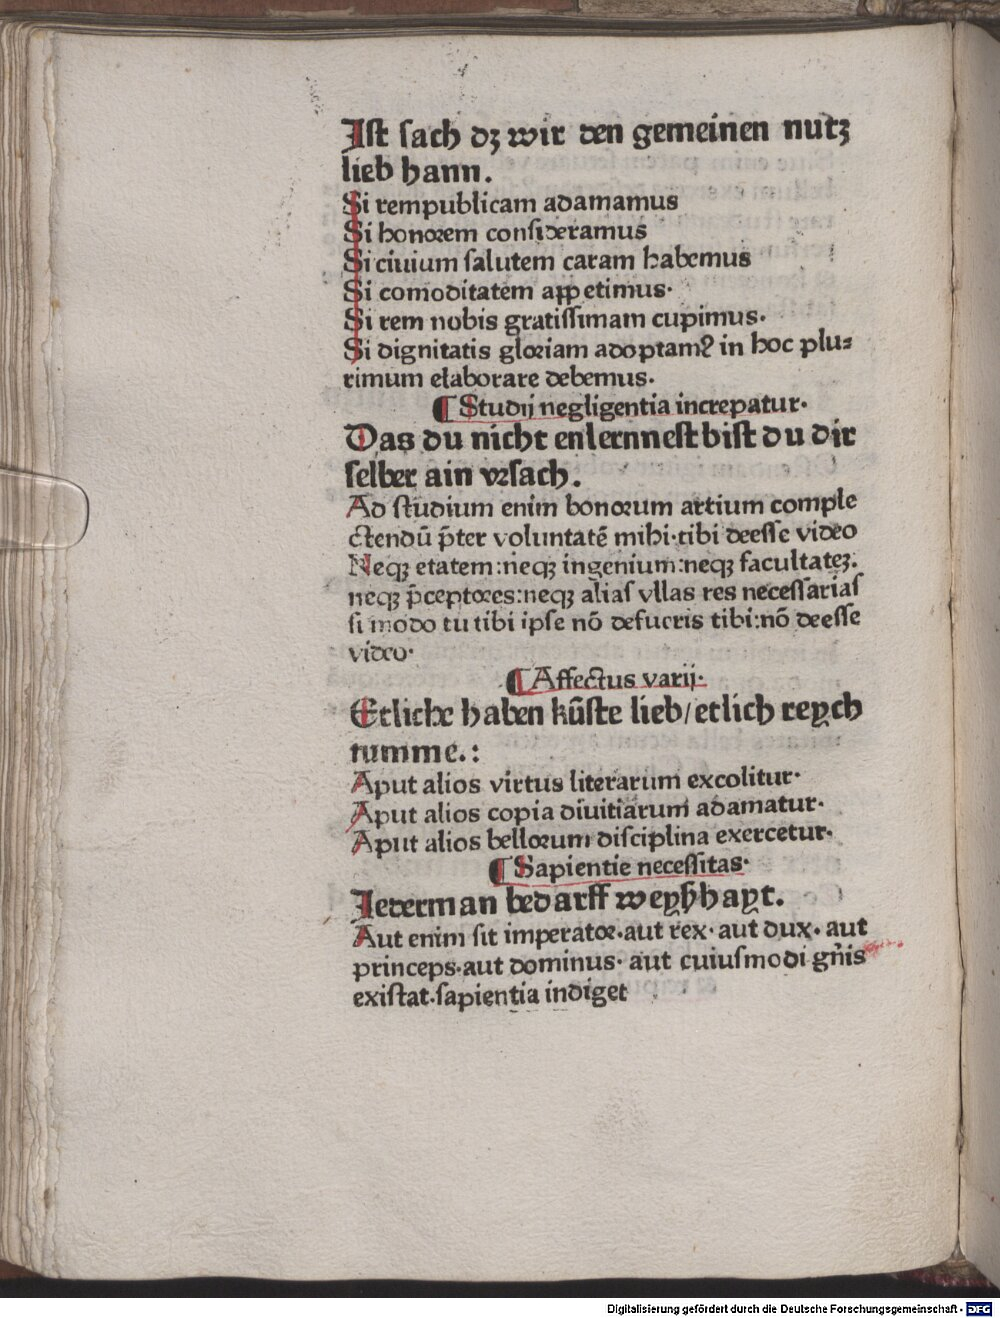 Ist sach dz wir den gemeinen nutz
lieb hann.
Si rempublicam adamamus
Si honorem consideramus
Si ciuium salutem caram habemus
Si comoditatem appetimus.
Si rem nobis gratissimam cupimus.
Si dignitatis gloriam adoptamꝰ in hoc plu⸗
rimum elaborare debemus.
¶ Studij negligentia increpatur.
Das du nicht enlernnest bist du dir
selber ain vrsach.
Ad studium enim bonorum artium comple
ctendū p̄ter voluntatē mihi.tibi deesse video
Neqꝫ etatem:neqꝫ ingenium:neqꝫ facultateꝫ.
neqꝫ p̄ceptores:neqꝫ alias vllas res necessarias
si modo tu tibi ipse nō defueris tibi:nō deesse
video.
¶ Affectus varij.
Etliche haben kūste lieb/etlich reych
tumme.:
Aput alios virtus literarum excolitur.
Aput alios copia diuitiarum adamatur.
Aput alios bellorum disciplina exercetur.
¶ Sapientie necessitas.
Jederman bedarff weyßhayt.
Aut enim sit imperator.aut rex.aut dux.aut
princeps.aut dominus. aut cuiusmodi gn̄is
existat.sapientia indiget
Digitalisierung gefördert durch die Deutsche Forschungsgemeinschaft - DFG